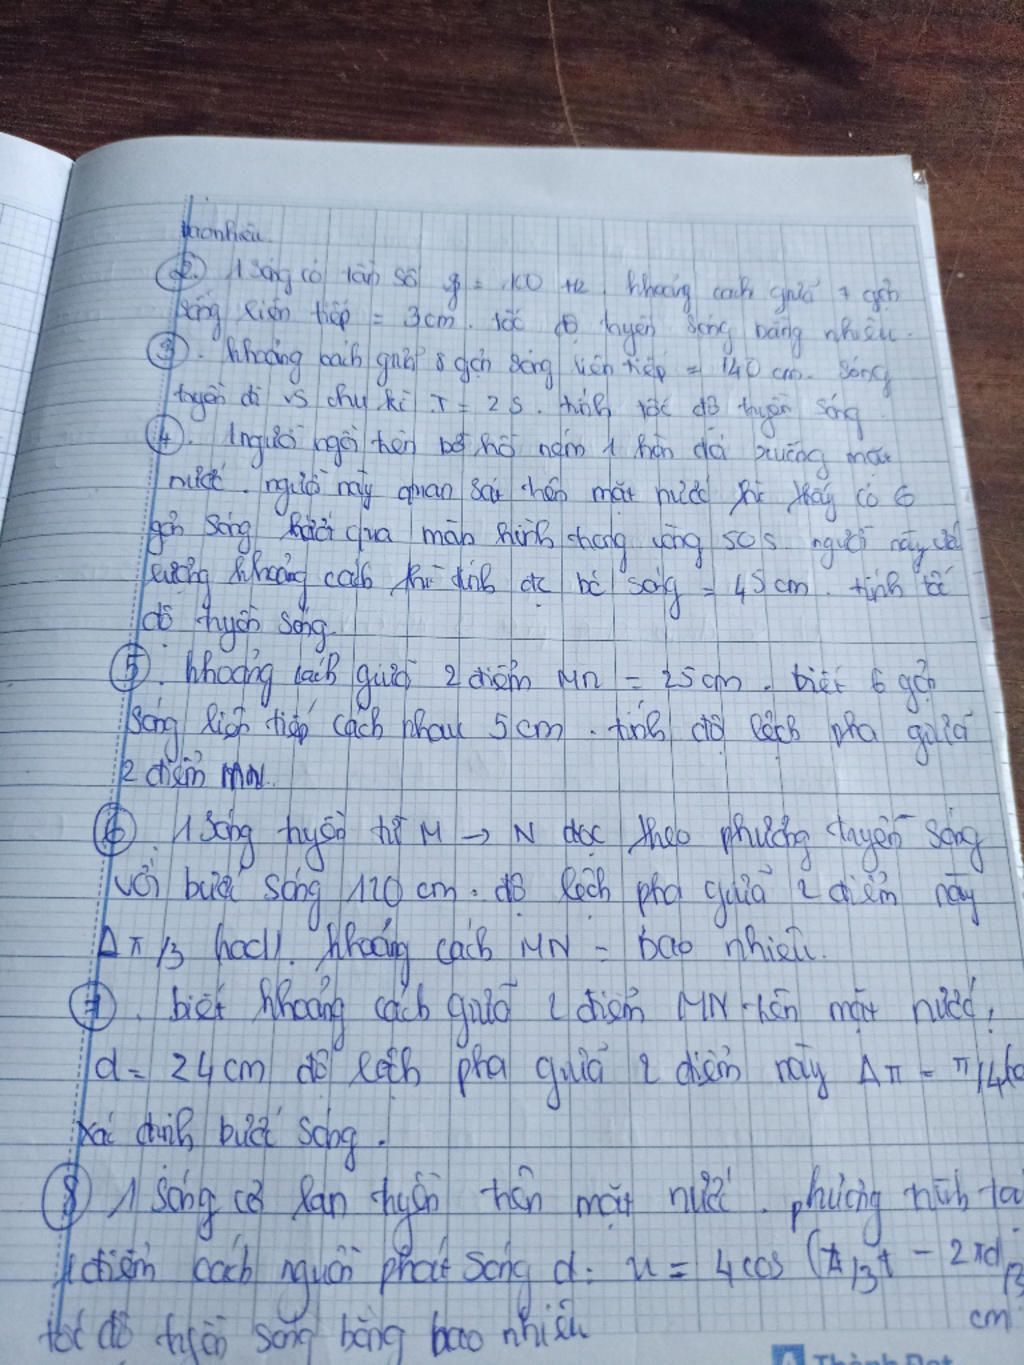 bao nhiêu.
2. 1 sóng có tần số f = 100 Hz khoảng cách giữa 7 gợn
sóng liên tiếp = 3cm. tốc độ truyền sóng bằng nhiêu.
3. khoảng cách giữa 8 gợn sóng liên tiếp = 140 cm. sóng
truyền đi vs chu kì T = 2s. tính tốc độ truyền sóng
4. 1 người ngồi trên bờ hồ ném 1 hòn đá xuống mặt
nước. người này quan sát trên mặt nước thì thấy có 6
gợn sóng qua màn hình trong vòng 50s người này
lượng khoảng cách thì tính đc bc sóng = 45cm. tính tốc
độ truyền sóng.
5. khoảng cách giữa 2 điểm MN = 25cm. biết 6 gợn
sóng liên tiếp cách nhau 5cm. tính độ lệch pha giữa
2 điểm MN.
6. 1 sóng truyền từ M → N dọc theo phương truyền sóng
với bước sóng 120 cm. độ lệch pha giữa 2 điểm này
Δπ/3 khoảng cách MN = bao nhiêu.
7. biết khoảng cách giữa 2 điểm MN trên mặt nước,
d = 24cm độ lệch pha giữa 2 điểm này Δπ = π/4
xác định bước sóng.
8 1 sóng cơ lan truyền trên mặt nước. phương trình tại
1 điểm cách nguồn phát sóng d: u = 4cos (π/3t - 2πd/3
cm
tốc độ truyền sóng bằng bao nhiêu
Thành Đạt